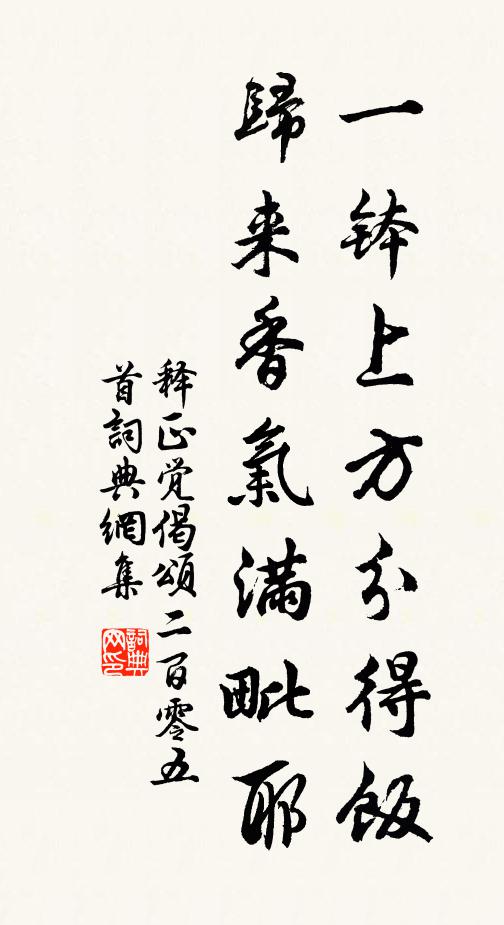 一鉢上方分得飯
歸来香氣滿毗耶
释正覚偈頌二百零五
首詞典網集
詞典网印